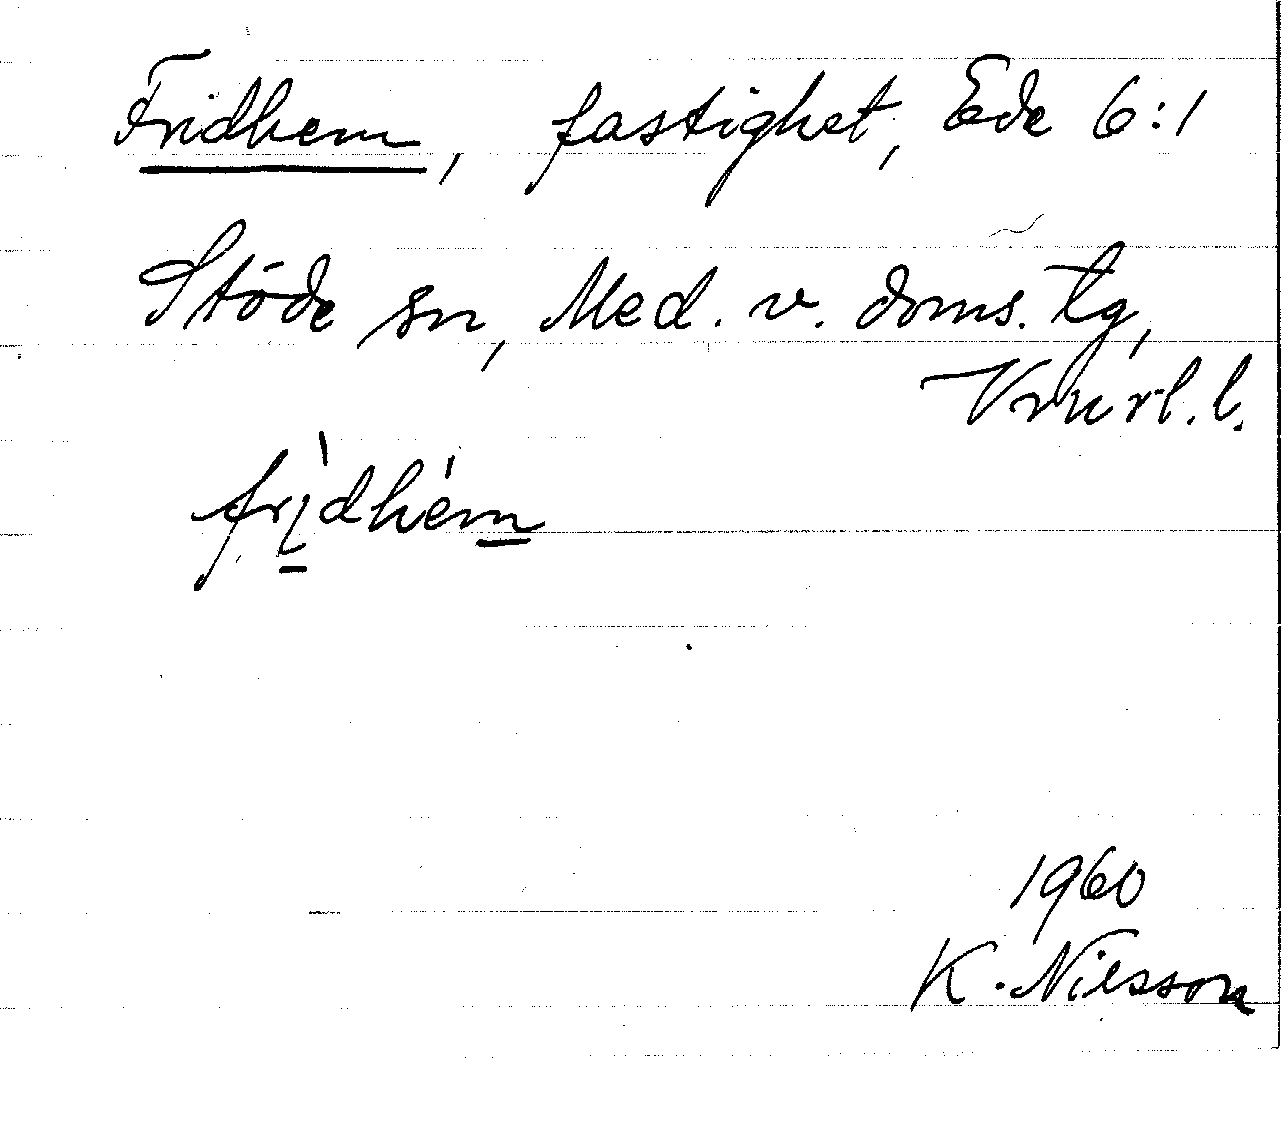 Fridhem, fastighet, Ede 6:1
Stöde sn, Med. v. doms. tg,
Vnrrl. l.
fri̱dhem̱
1960
K. Nilsson